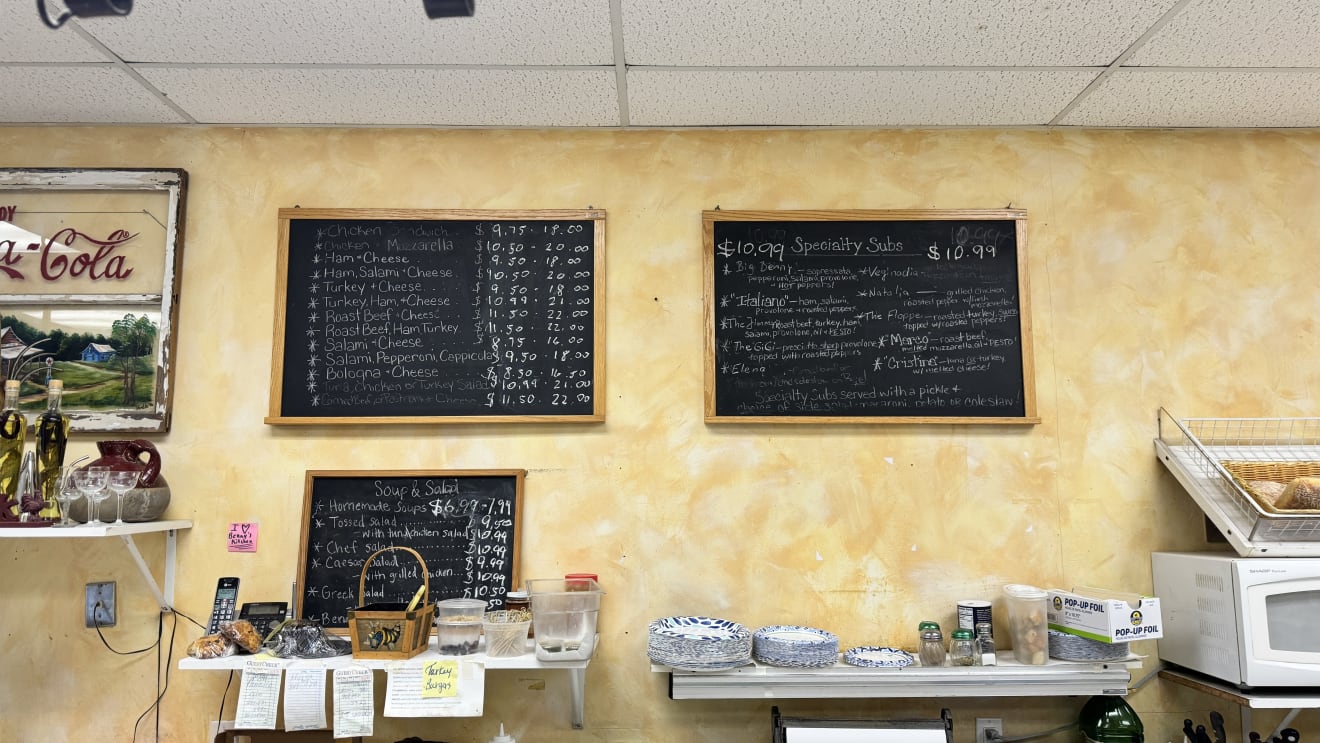 Coca-Cola
*Chicken Sandwich $ 9.75 - 18.00
*Chicken + Mozzarella $ 10.50 - 20.00
*Ham + Cheese $ 9.50 - 18.00
*Ham, Salami + Cheese $ 10.50 - 20.00
*Turkey + Cheese $ 9.50 - 18.00
*Turkey, Ham, + Cheese $ 10.99 - 21.00
*Roast Beef + Cheese $ 11.50 - 22.00
*Roast Beef, Ham Turkey $ 11.50 - 22.00
*Salami + Cheese $ 8.75 - 16.00
*Salami, Pepperoni, Cappicula $ 9.50 - 18.00
*Bologna + Cheese $ 8.50 - 16.50
*Tuna, Chicken or Turkey Salad $ 10.99 - 21.00
*Corned Beef, or Pastrami + Cheese $ 11.50 - 22.00
$10.99 Specialty Subs $10.99
*Big Benny - sopressata,
pepperoni, salami, provolone,
+ HOT peppers!
*"Italiano" - ham, salami,
provolone + roasted peppers
*The Jimmy roast beef, turkey, ham
salami, provolone, oil + PESTO!
*The GiGi - prosciutto sharp provolone
topped with roasted peppers
*Elena
*Veginadia
*Natalia - grilled chicken,
roasted pepper w/fresh
mozzarella!
*The Flopper - roasted turkey, swiss
topped w/roasted peppers!
*Merco - roast beef,
melted mozzarella, oil + PESTO!
*"Cristina" - tuna or turkey,
w/melted cheese!
Specialty Subs served with a pickle +
choice of side salad - macaroni, potato or coleslaw!
Soup & Salad
* Homemade Soups $6.99 - 7.99
* Tossed salad 9.50
with tuna/chicken salad $10.99
* Chef salad $10.99
* Caesar Salad $ 9.99
with grilled chicken $ 10.99
* Greek salad $10.50
I ♡
Benny's
Kitchen
GUEST CHECK
GUEST CHECK
Turkey
Burgers
POP-UP FOIL
POP-UP FOIL
SHARP